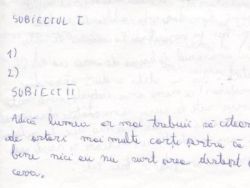 SUBIECTUL I
1)
2)
SUBIECT II
Adică lumea ar mai trebui să citeas
de ori mai multe cărți pentru că
bine nici eu nu sunt prea deștept p
ceva.